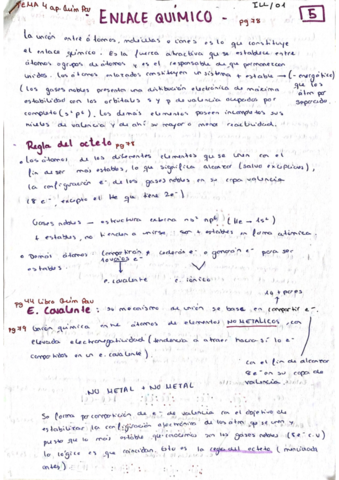 TEMA 4 ap. Quim Pau
ILL/01
ENLACE QUÍMICO - pg 78
5
La unión entre átomos, moléculas o iones es lo que constituye
el enlace químico. Es la fuerza atractiva que se establece entre
átomos o grupos de átomos y es el responsable de que permanezcan
unidos. Los átomos enlazados constituyen un sistema + estable → (- energético)
que los átm por separado.
(los gases nobles presentan una distribución electrónica de máxima
estabilidad con los orbitales s y p de valencia ocupados por
completo (s² p⁶), los demás elementos poseen incompletos sus
niveles de valencia y de ahí su mayor o menor reactividad.
- Regla del octeto pg 78
• los átomos de los diferentes elementos que se unen con el
fin de ser más estables, lo que significa alcanzar (salvo excepciones),
la configuración e⁻ de los gases nobles en su capa valencia
(8 e⁻, excepto el He que tiene 2e⁻)
Gases nobles — estructura externa ns² np⁶ (He - 1s²)
+ estables, no tienden a unirse. son + estables en forma atómica.
• Demás átomos: compartirán o cederán e⁻ o ganarán e⁻ para ser
estables.
e. covalente
e. iónico
pg 44 Libro Quim Pau
1 o + pares
E. Covalente : su mecanismo de unión se basa en compartir e⁻
pg 79
unión química entre átomos de elementos NO METÁLICOS, con
elevada electronegatividad (tendencia a atraer hacia sí los e⁻
compartidos en un e. covalente).
con el fin de alcanzar
8 e⁻ en su capa de
valencia
NO METAL + NO METAL
Se forma por compartición de e⁻ de valencia con el objetivo de
estabilizar la configuración electrónica de los átm. que se unen y
puesto que la más estable que conocemos son los gases nobles (8e⁻ c.v)
lo lógico es que coincidan. Esto es la regla del octeto (mencionada
antes)